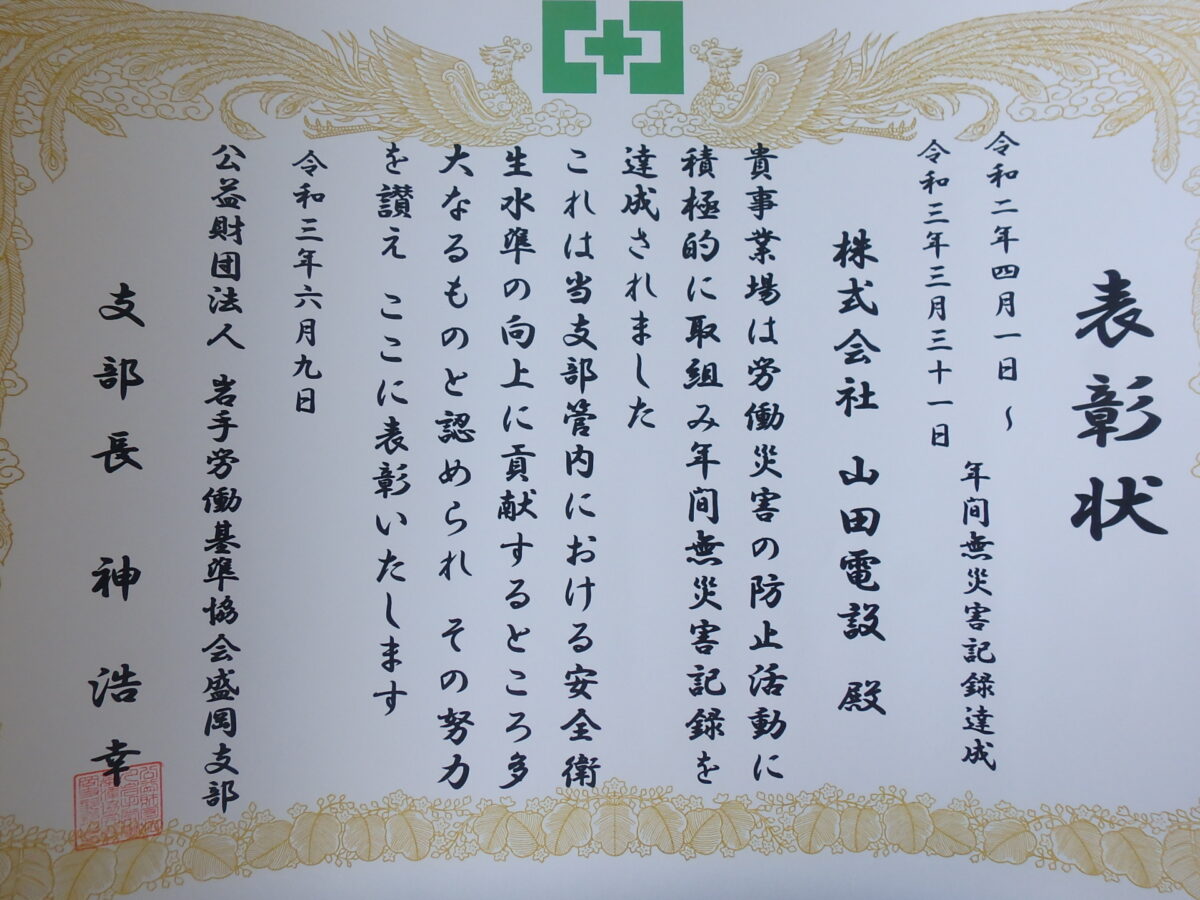 表彰状
令和二年四月一日～
令和三年三月三十一日
年間無災害記録達成
株式会社 山田電設 殿
貴事業場は労働災害の防止活動に
積極的に取組み年間無災害記録を
達成されました
これは当支部管内における安全衛
生水準の向上に貢献するところ多
大なるものと認められ その努力
を讃え ここに表彰いたします
令和三年六月九日
公益財団法人 岩手労働基準協会盛岡支部
支部長 神 浩幸